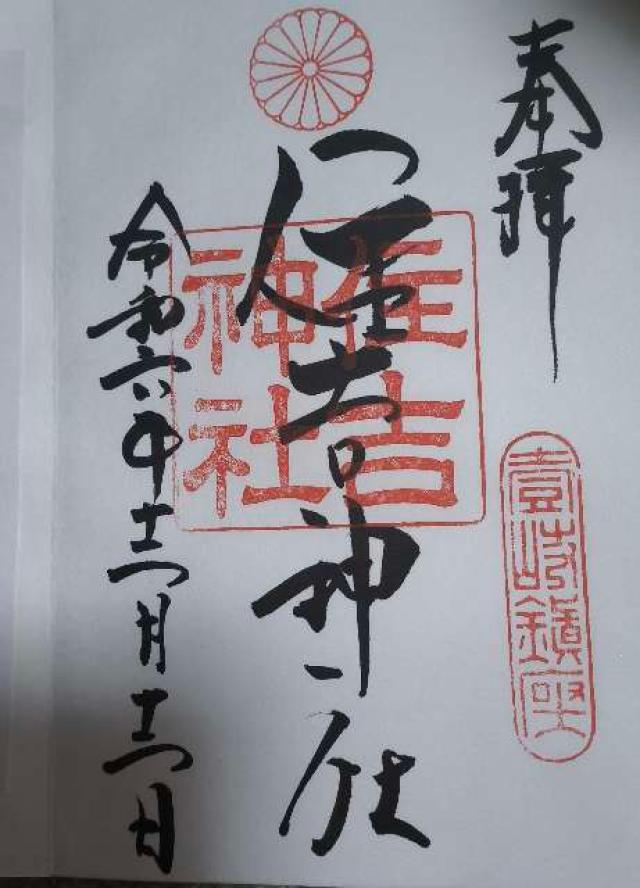 奉拝
壹岐鎮座
住吉神社
住吉神社
令和六年十二月十二日